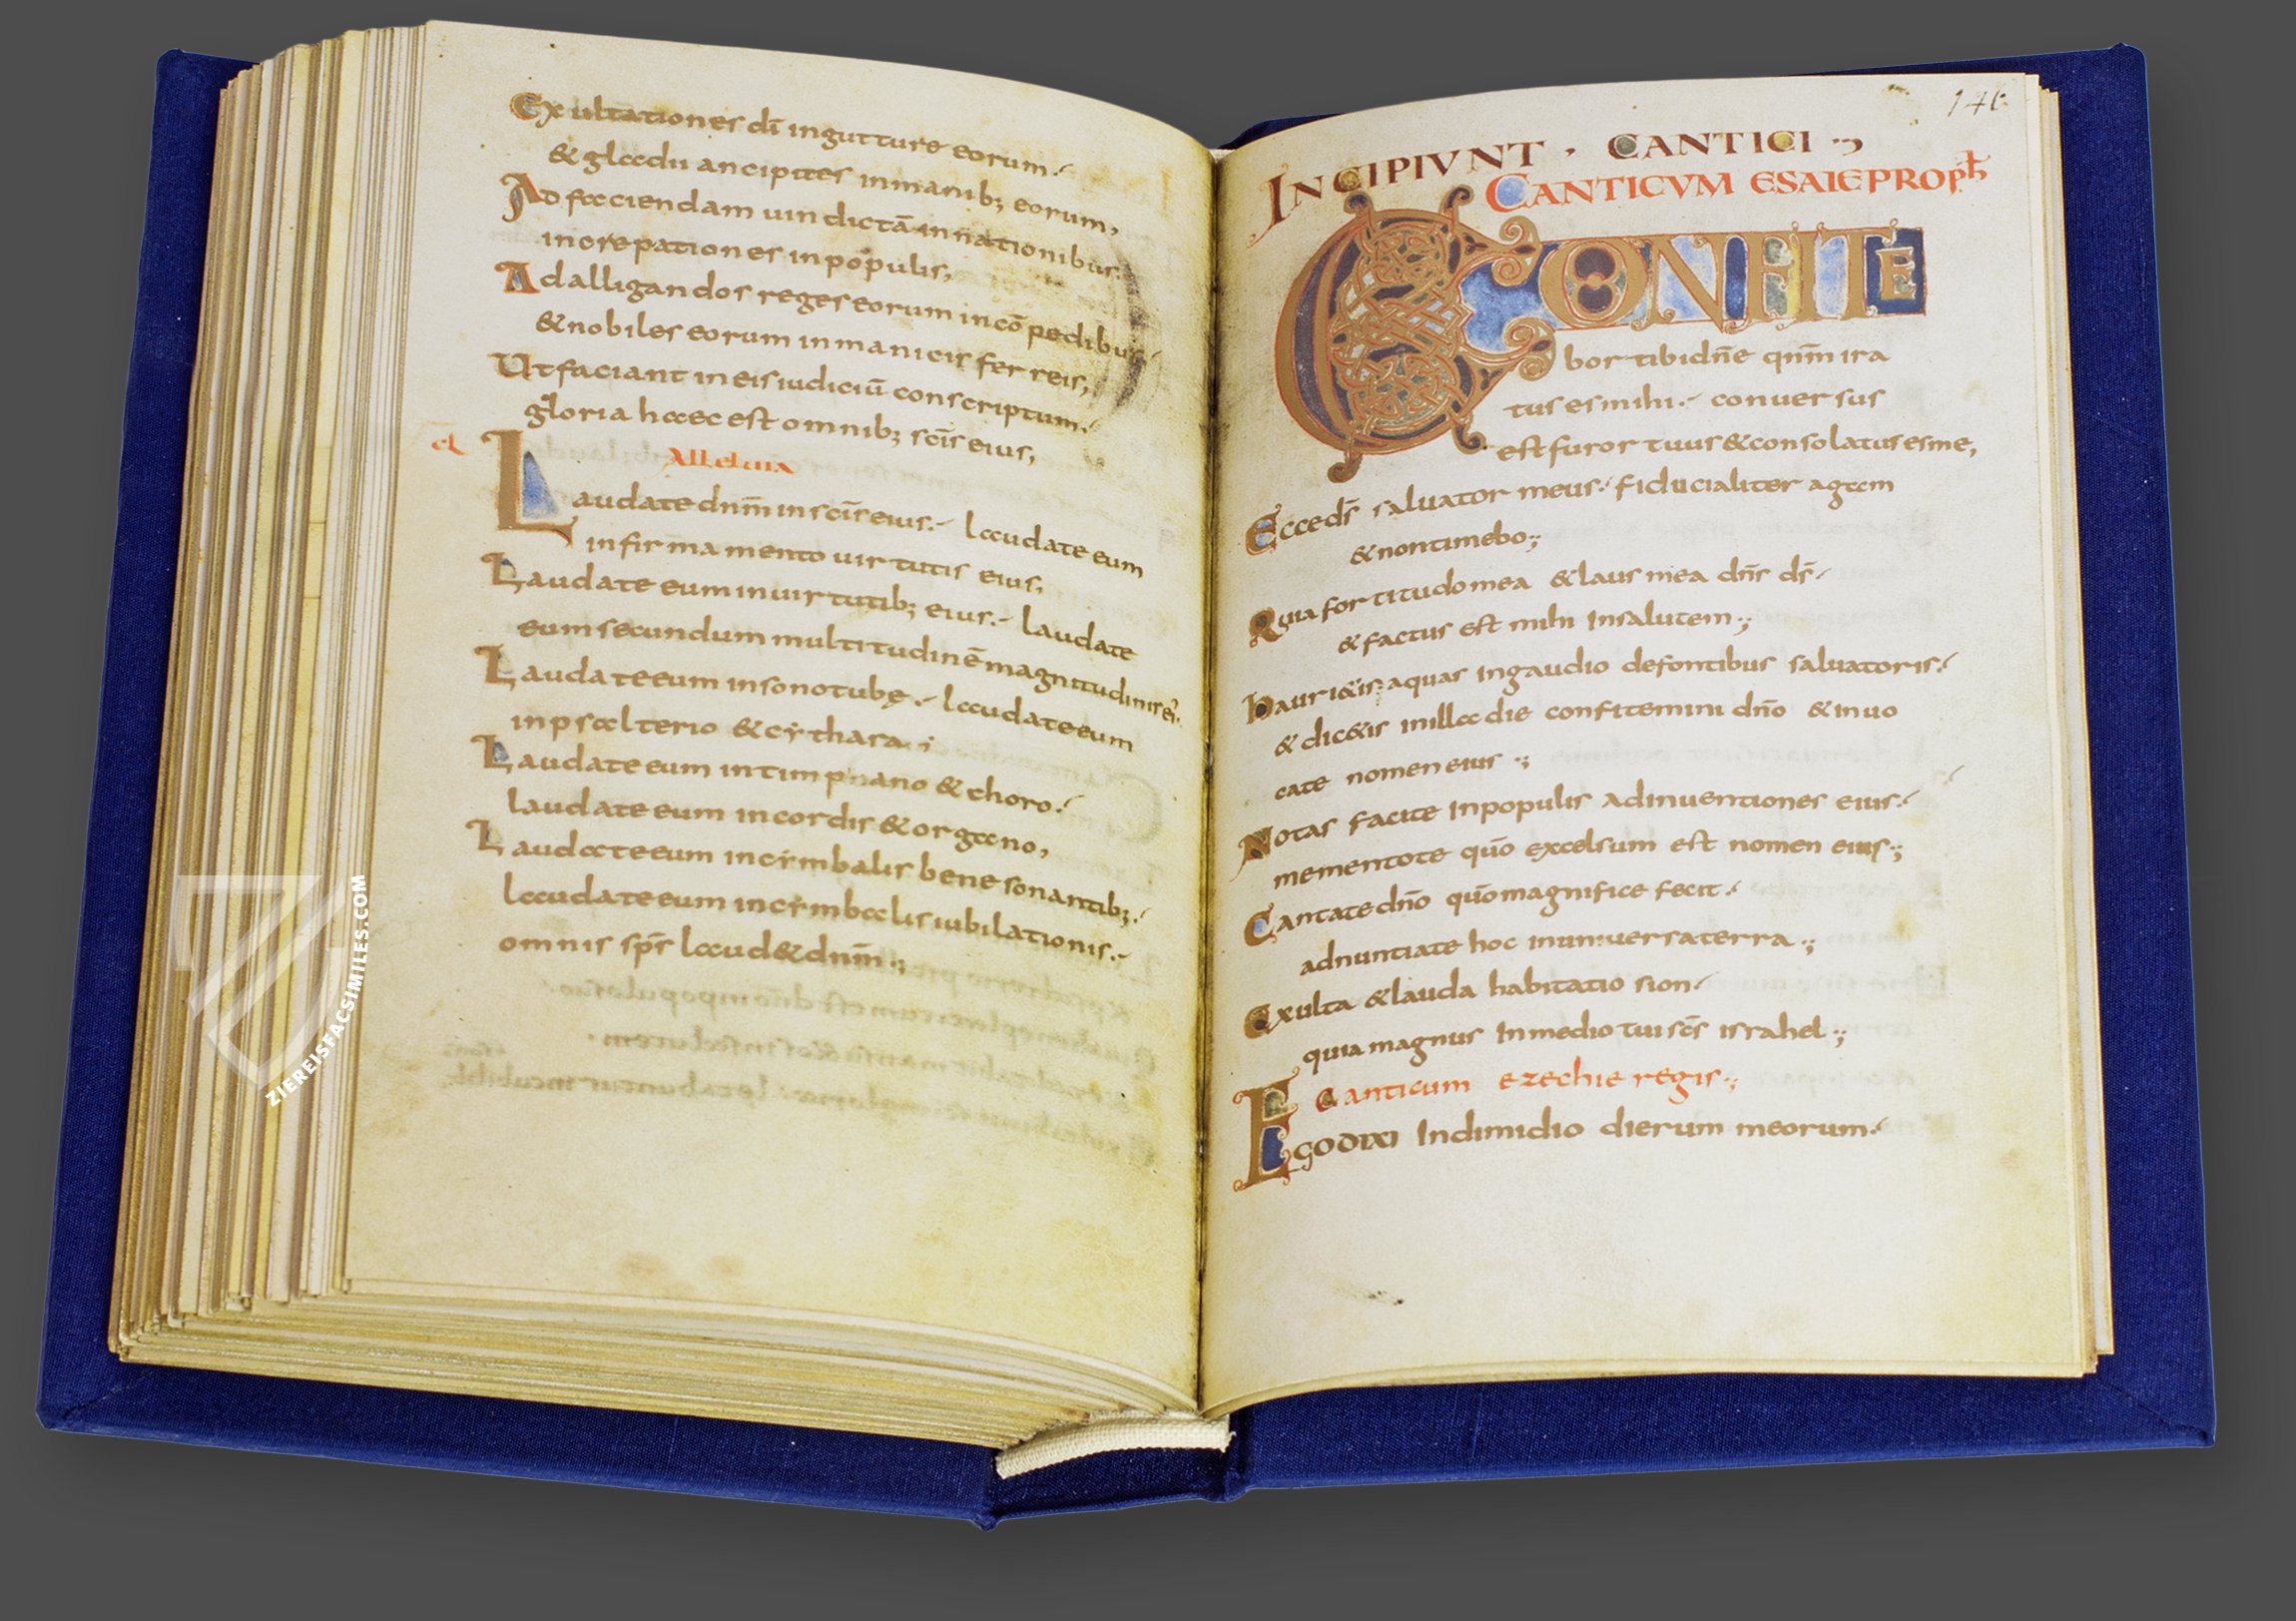 Exultationes dī ingutture eorum·
& gladii ancipites inmanib; eorum,
Ad faciendam uindictā innationibus·
increpationes inpopulis,
Ad alligandos reges eorum incōpedibus·
& nobiles eorum inmanicis ferreis,
Ut faciant in eis iudiciū conscriptum·
gloria haec est omnib; scīs eius,
cl Alleluia
Laudate dnm̄ in scīs eius·- laudate eum
infirmamento uirtutis eius,
Laudate eum inuirtutib; eius·- laudate
eum secundum multitudinē magnitudinis ei'·
Laudate eum insono tubę·- laudate eum
inpsalterio & cythara·;
Laudate eum intimphano & choro·
laudate eum incordis & organo,
Laudate eum incimbalis bene sonantib;·
laudate eum incimbalis iubilationis·-
omnis spr̄ laud& dnm̄·;
146
INCIPIVNT · CANTICI ·
CANTICVM ESAIE PROPħ
CONFITE
bor tibi dn̄e qnm̄ ira
tus es mihi·- conuersus
est furor tuus & consolatus es me,
Ecce dr̄ saluator meus· fiducialiter agam
& non timebo·;
Quia fortitudo mea & laus mea dnr̄ dr̄·
& factus est mihi Insalutem·;
hauri&is aquas ingaudio defontibus saluatoris·
& dic&is inilla die confitemini dnō & inuo
cate nomen eius ·;
Notas facite Inpopulis Adinuentiones eius·
mementote quō excelsum est nomen eius·;
Cantate dnō quō magnifice fecit·
adnuntiate hoc inuniuersa terra·;
Exulta & lauda habitatio sion·
quia magnus Inmedio tui scs̄ israhel·;
Canticum ezechie regis·;
EGO DIXI Indimidio dierum meorum·
ZIEREISFACSIMILES.COM